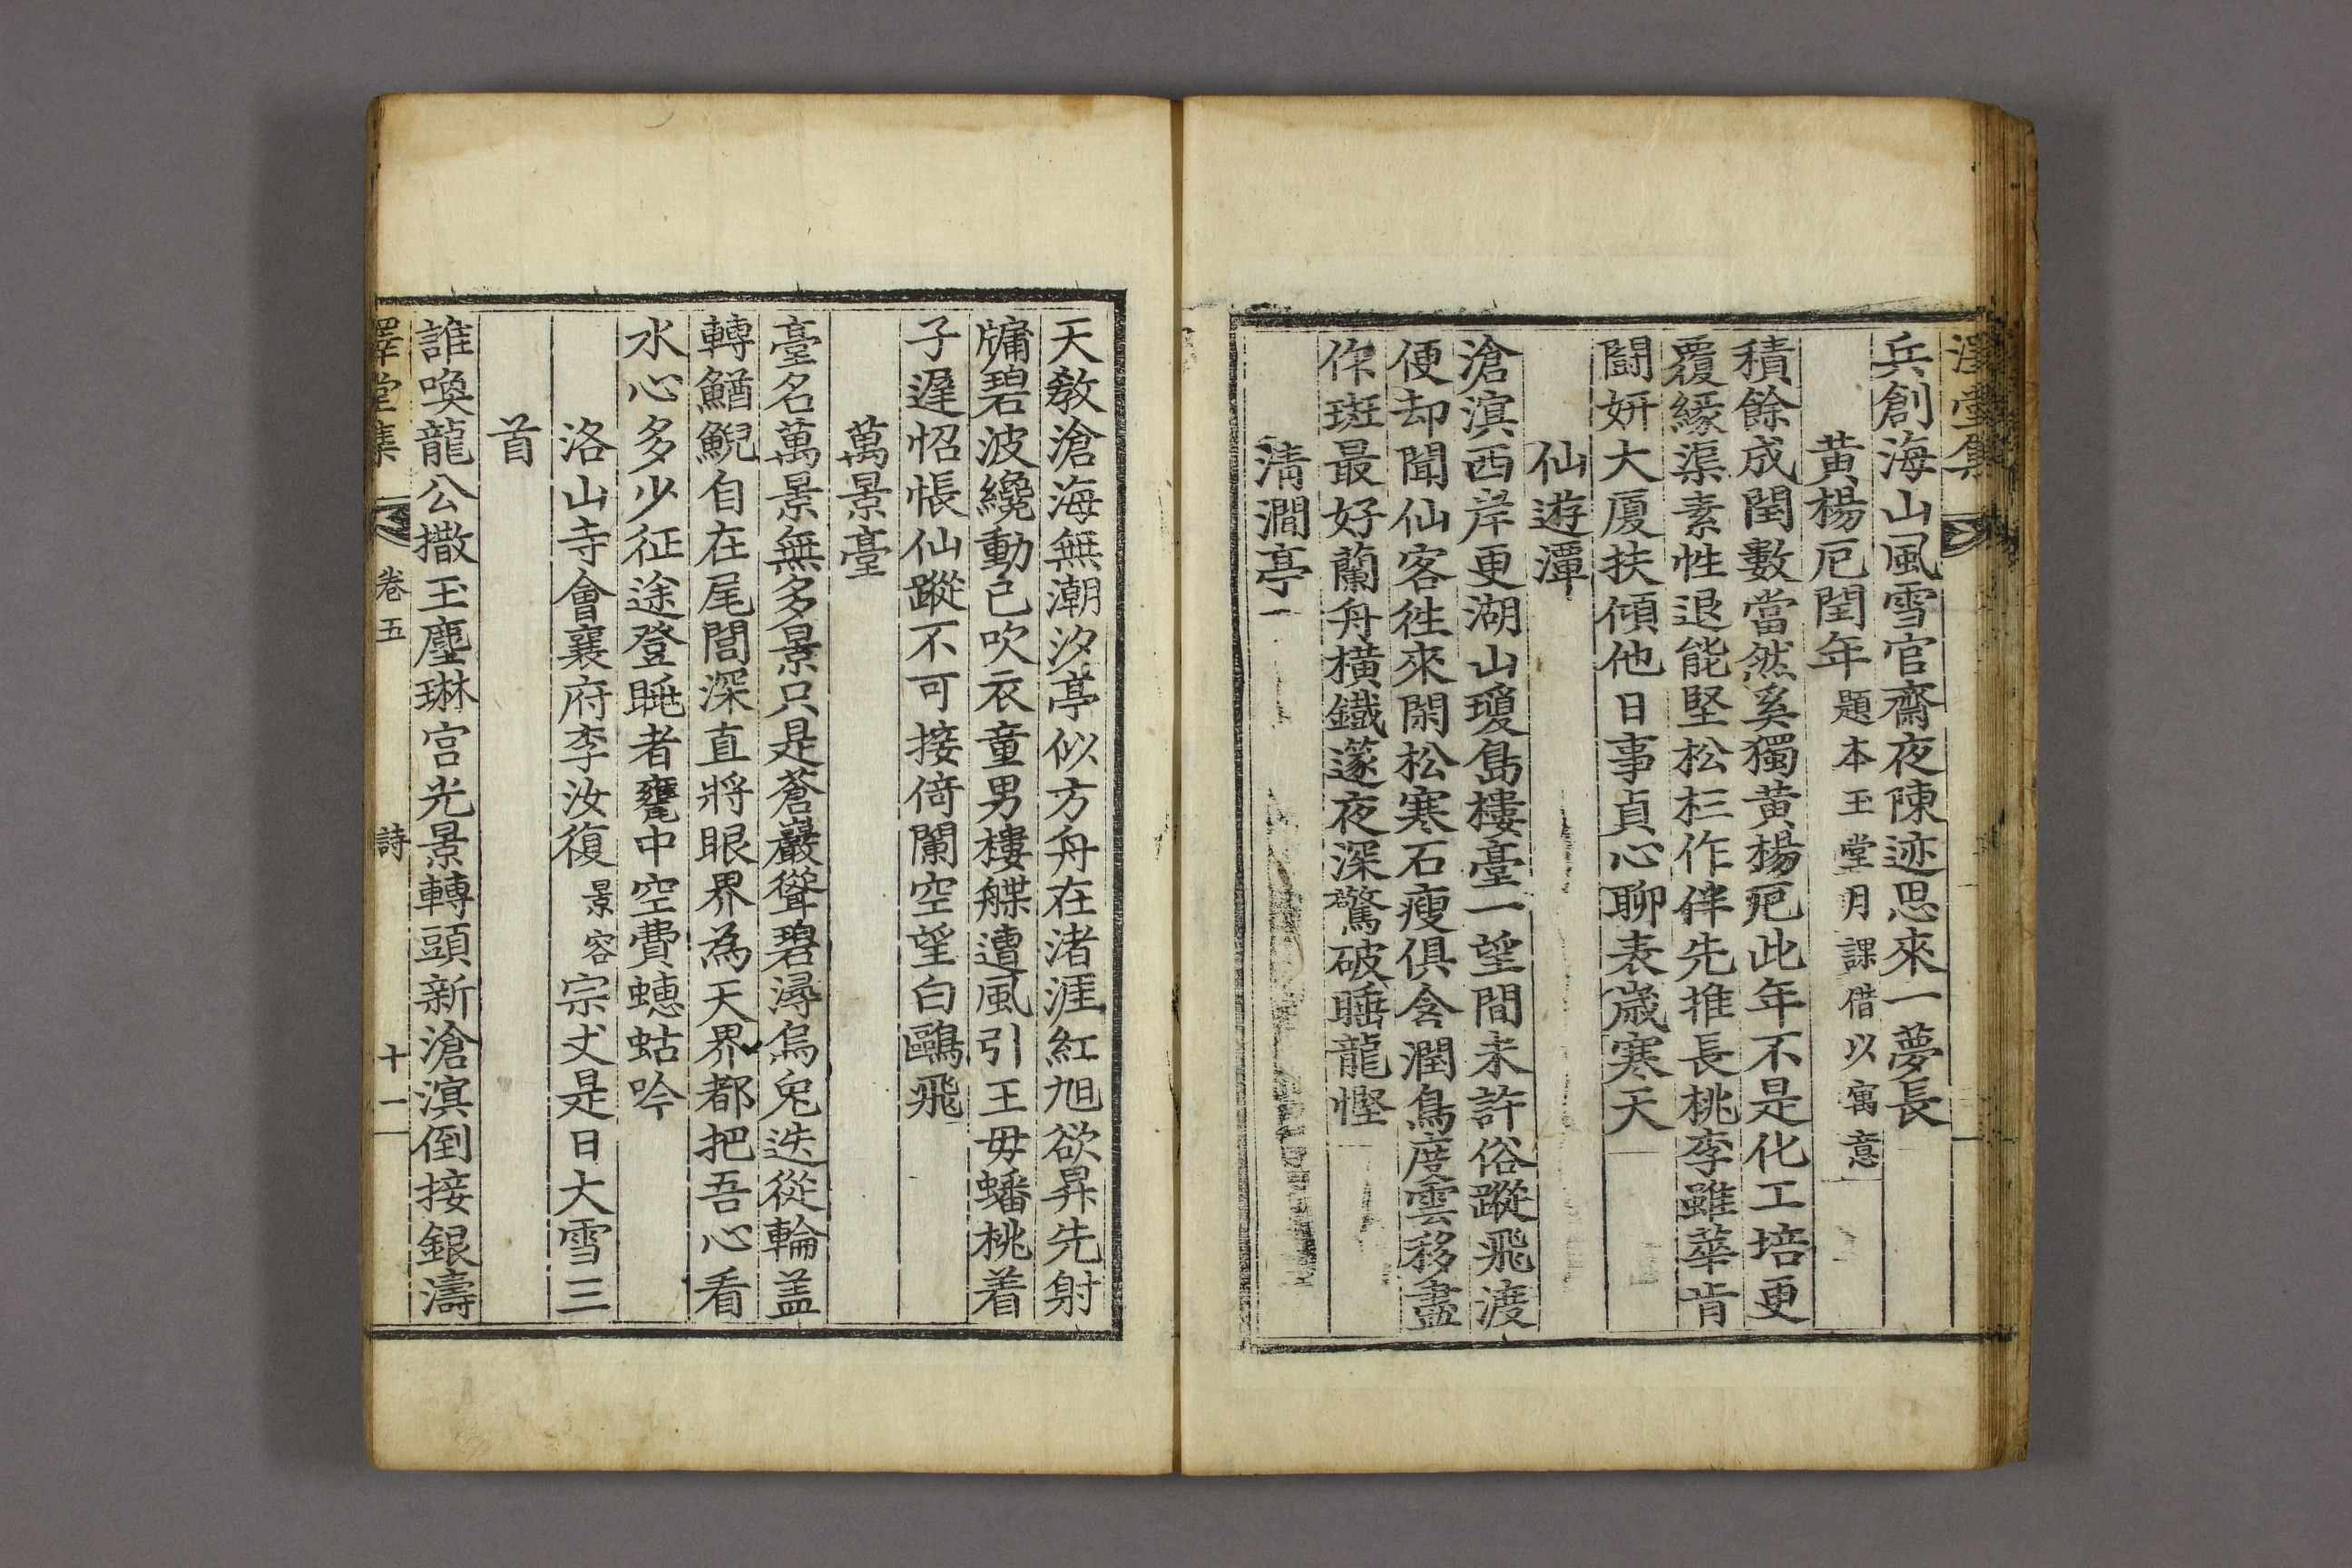 澤堂集
兵創海山風雪官齋夜陳迹思來一夢長
黃楊厄閏年 題本玉堂月課借以寓意
積餘成閏數當然奚獨黃楊厄此年不是化工培更
覆緣渠素性退能堅松杉作伴先推長桃李雖華肯
鬪姸大厦扶傾他日事貞心聊表歲寒天
仙遊潭
滄溟西岸更湖山瓊島樓臺一望間未許俗蹤飛渡
便却聞仙客徃來閑松寒石瘦俱含潤鳥度雲移盡
作斑最好蘭舟橫鐵篴夜深驚破睡龍慳
淸澗亭
天敎滄海無潮汐亭似方舟在渚涯紅旭欲昇先射
牗碧波纔動已吹衣童男樓艓遭風引王母蟠桃着
子遲怊悵仙蹤不可接倚闌空望白鷗飛
萬景臺
臺名萬景無多景只是蒼巖聳碧潯烏兔迭從輪盖
轉鰌鯢自在尾閭深直將眼界為天界都把吾心看
水心多少征途登眺者甕中空費蟪蛄吟
洛山寺會襄府李汝復 景容 宗丈是日大雪三
首
誰喚龍公撒玉塵琳宮光景轉頭新滄溟倒接銀濤
澤堂集 卷五 詩 十一